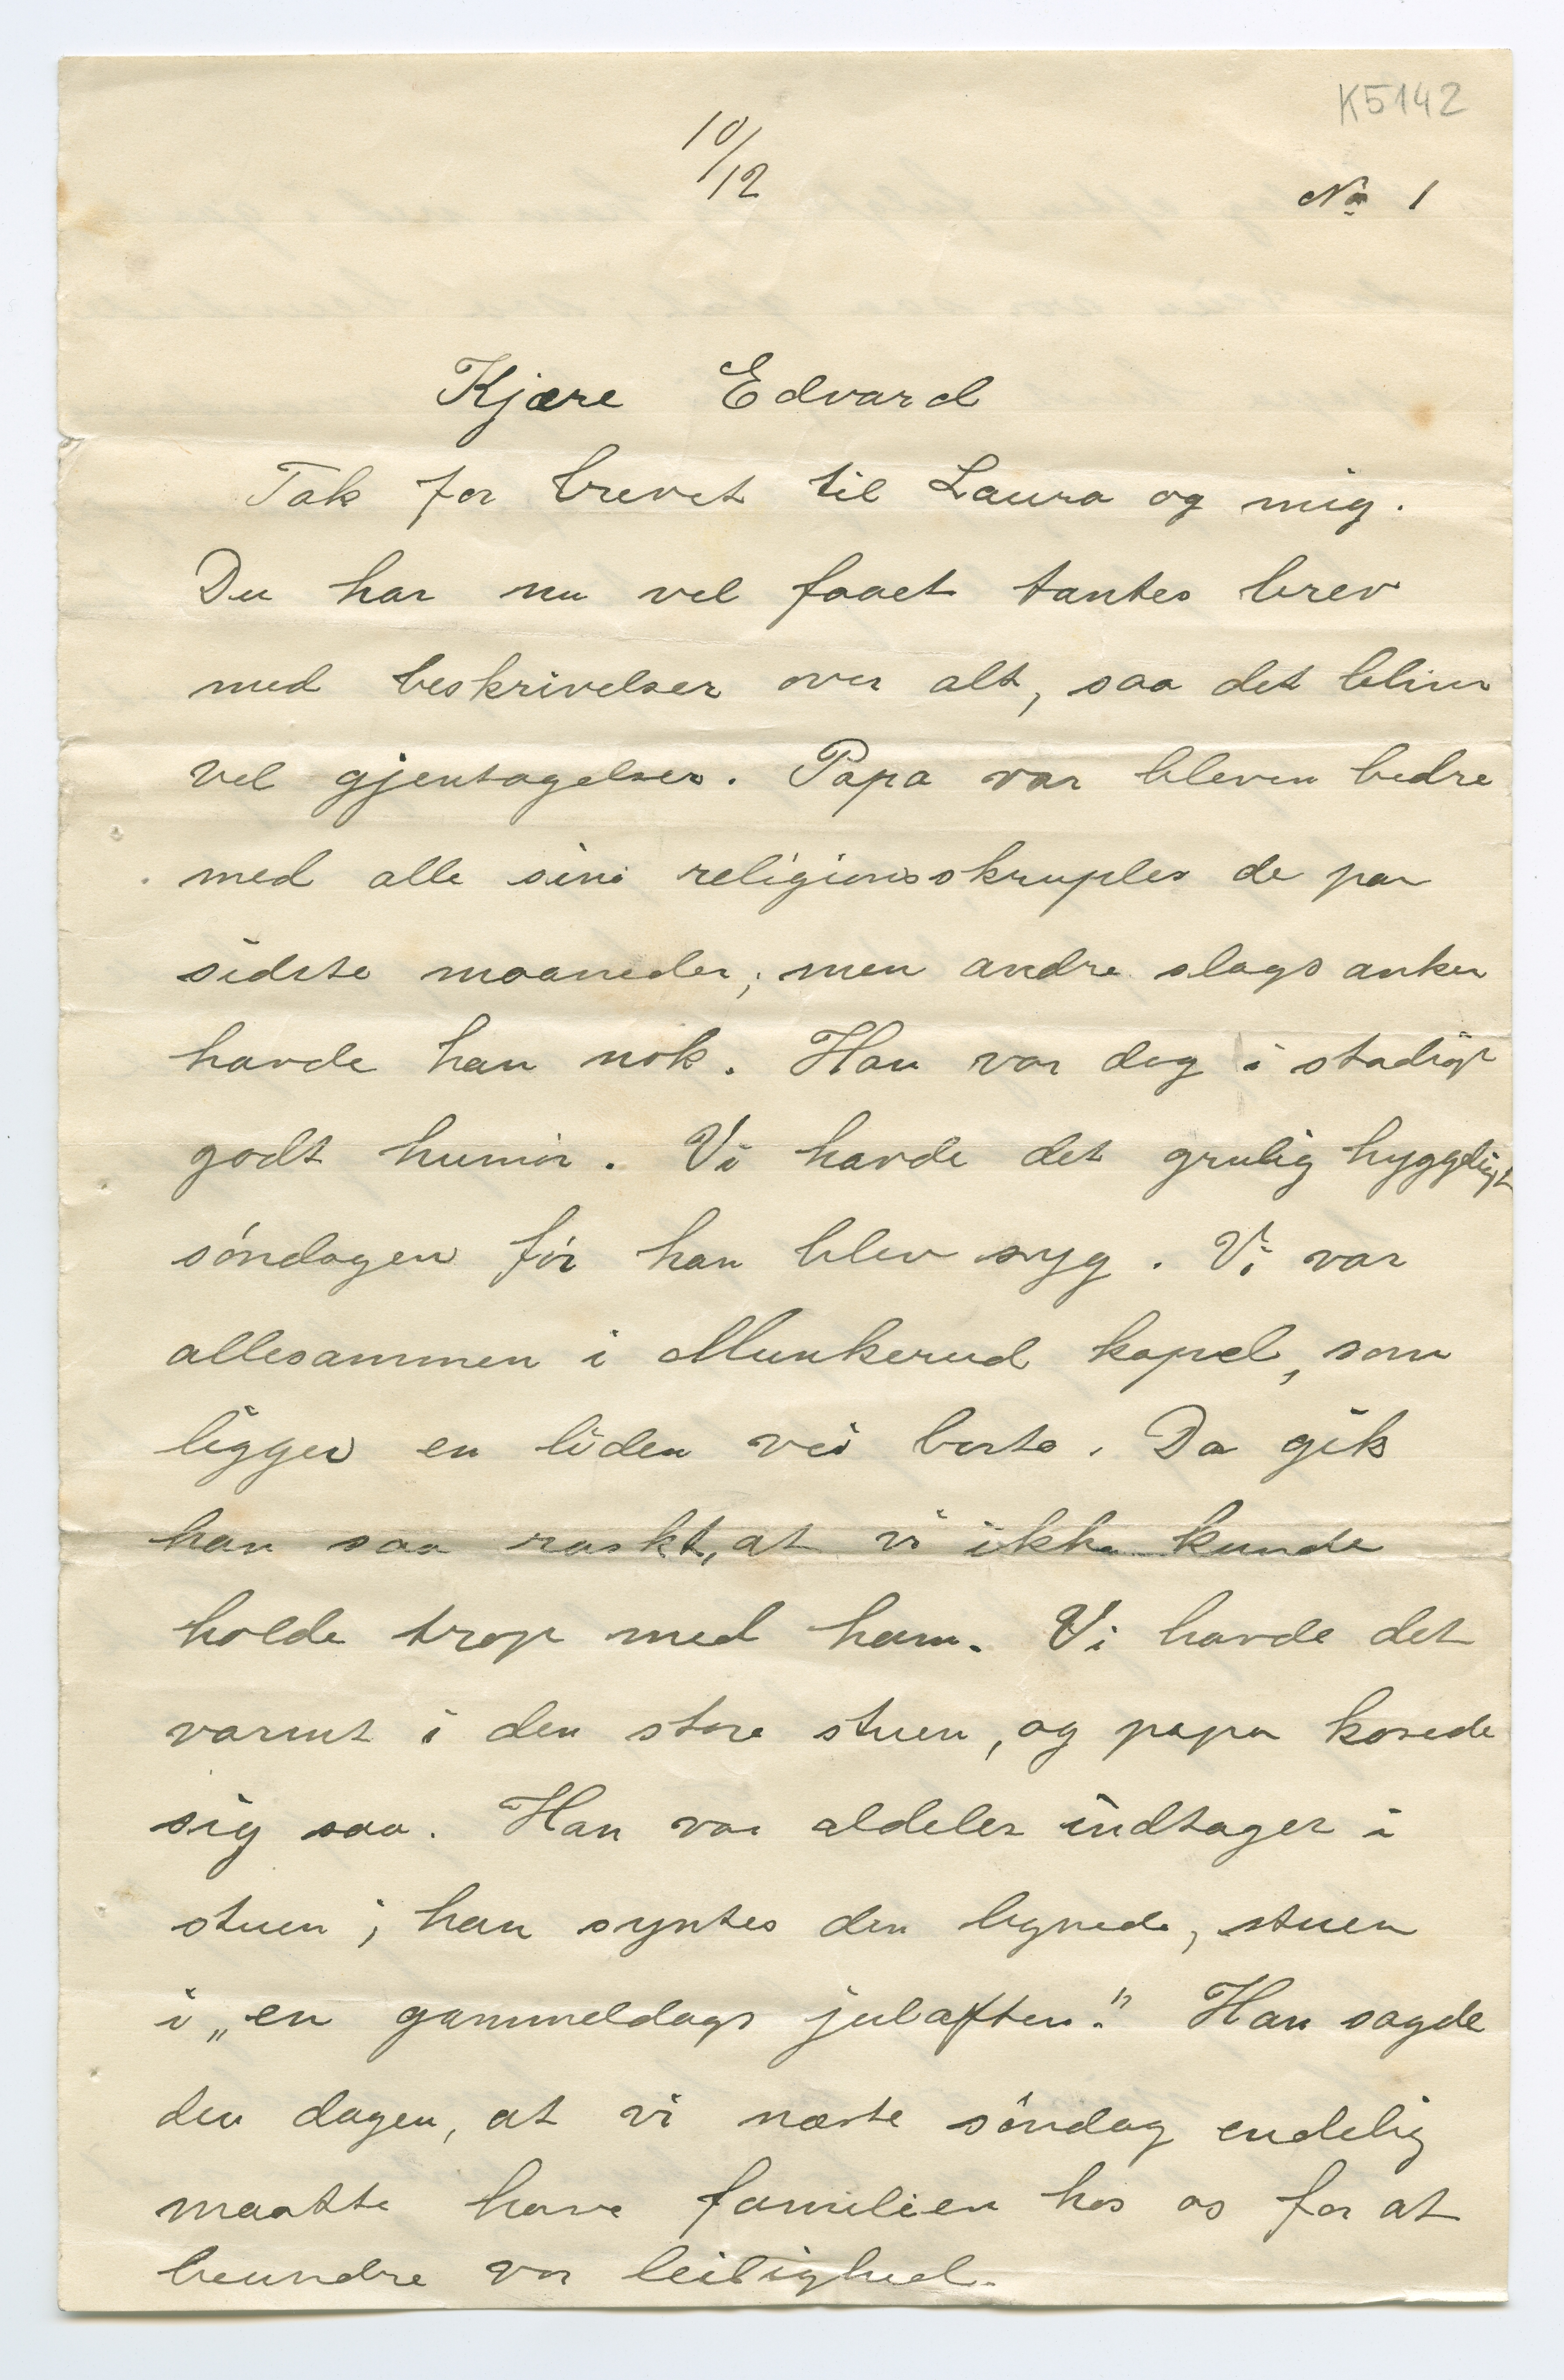 K5142
10/12
No 1
Kjære Edvard
Tak for brevet til Laura og mig.
Du har nu vel faaet tantes brev
med beskrivelser over alt, saa det bliver
vel gjentagelser. Papa var bleven bedre
med alle sine religionsskrupler de par
sidste maaneder; men andre slags anker
havde han nok. Han var dog i stadigt
godt humör. Vi havde det grulig hyggeligt
söndagen för han blev syg. Vi var
allesammen i Munkerud kapel, som
ligger en liden vei borte. Da gik
han saa raskt, at vi ikke kunde
holde trop med ham. Vi havde det
varmt i den store stuen, og papa kosede
sig saa. Han var aldeles indtaget i
stuen; han syntes den lignede, stuen
i „en gammeldags julaften". Han sagde
den dagen, at vi næste söndag endelig
maatte have familien hos os for at
beundre vor leilighed.